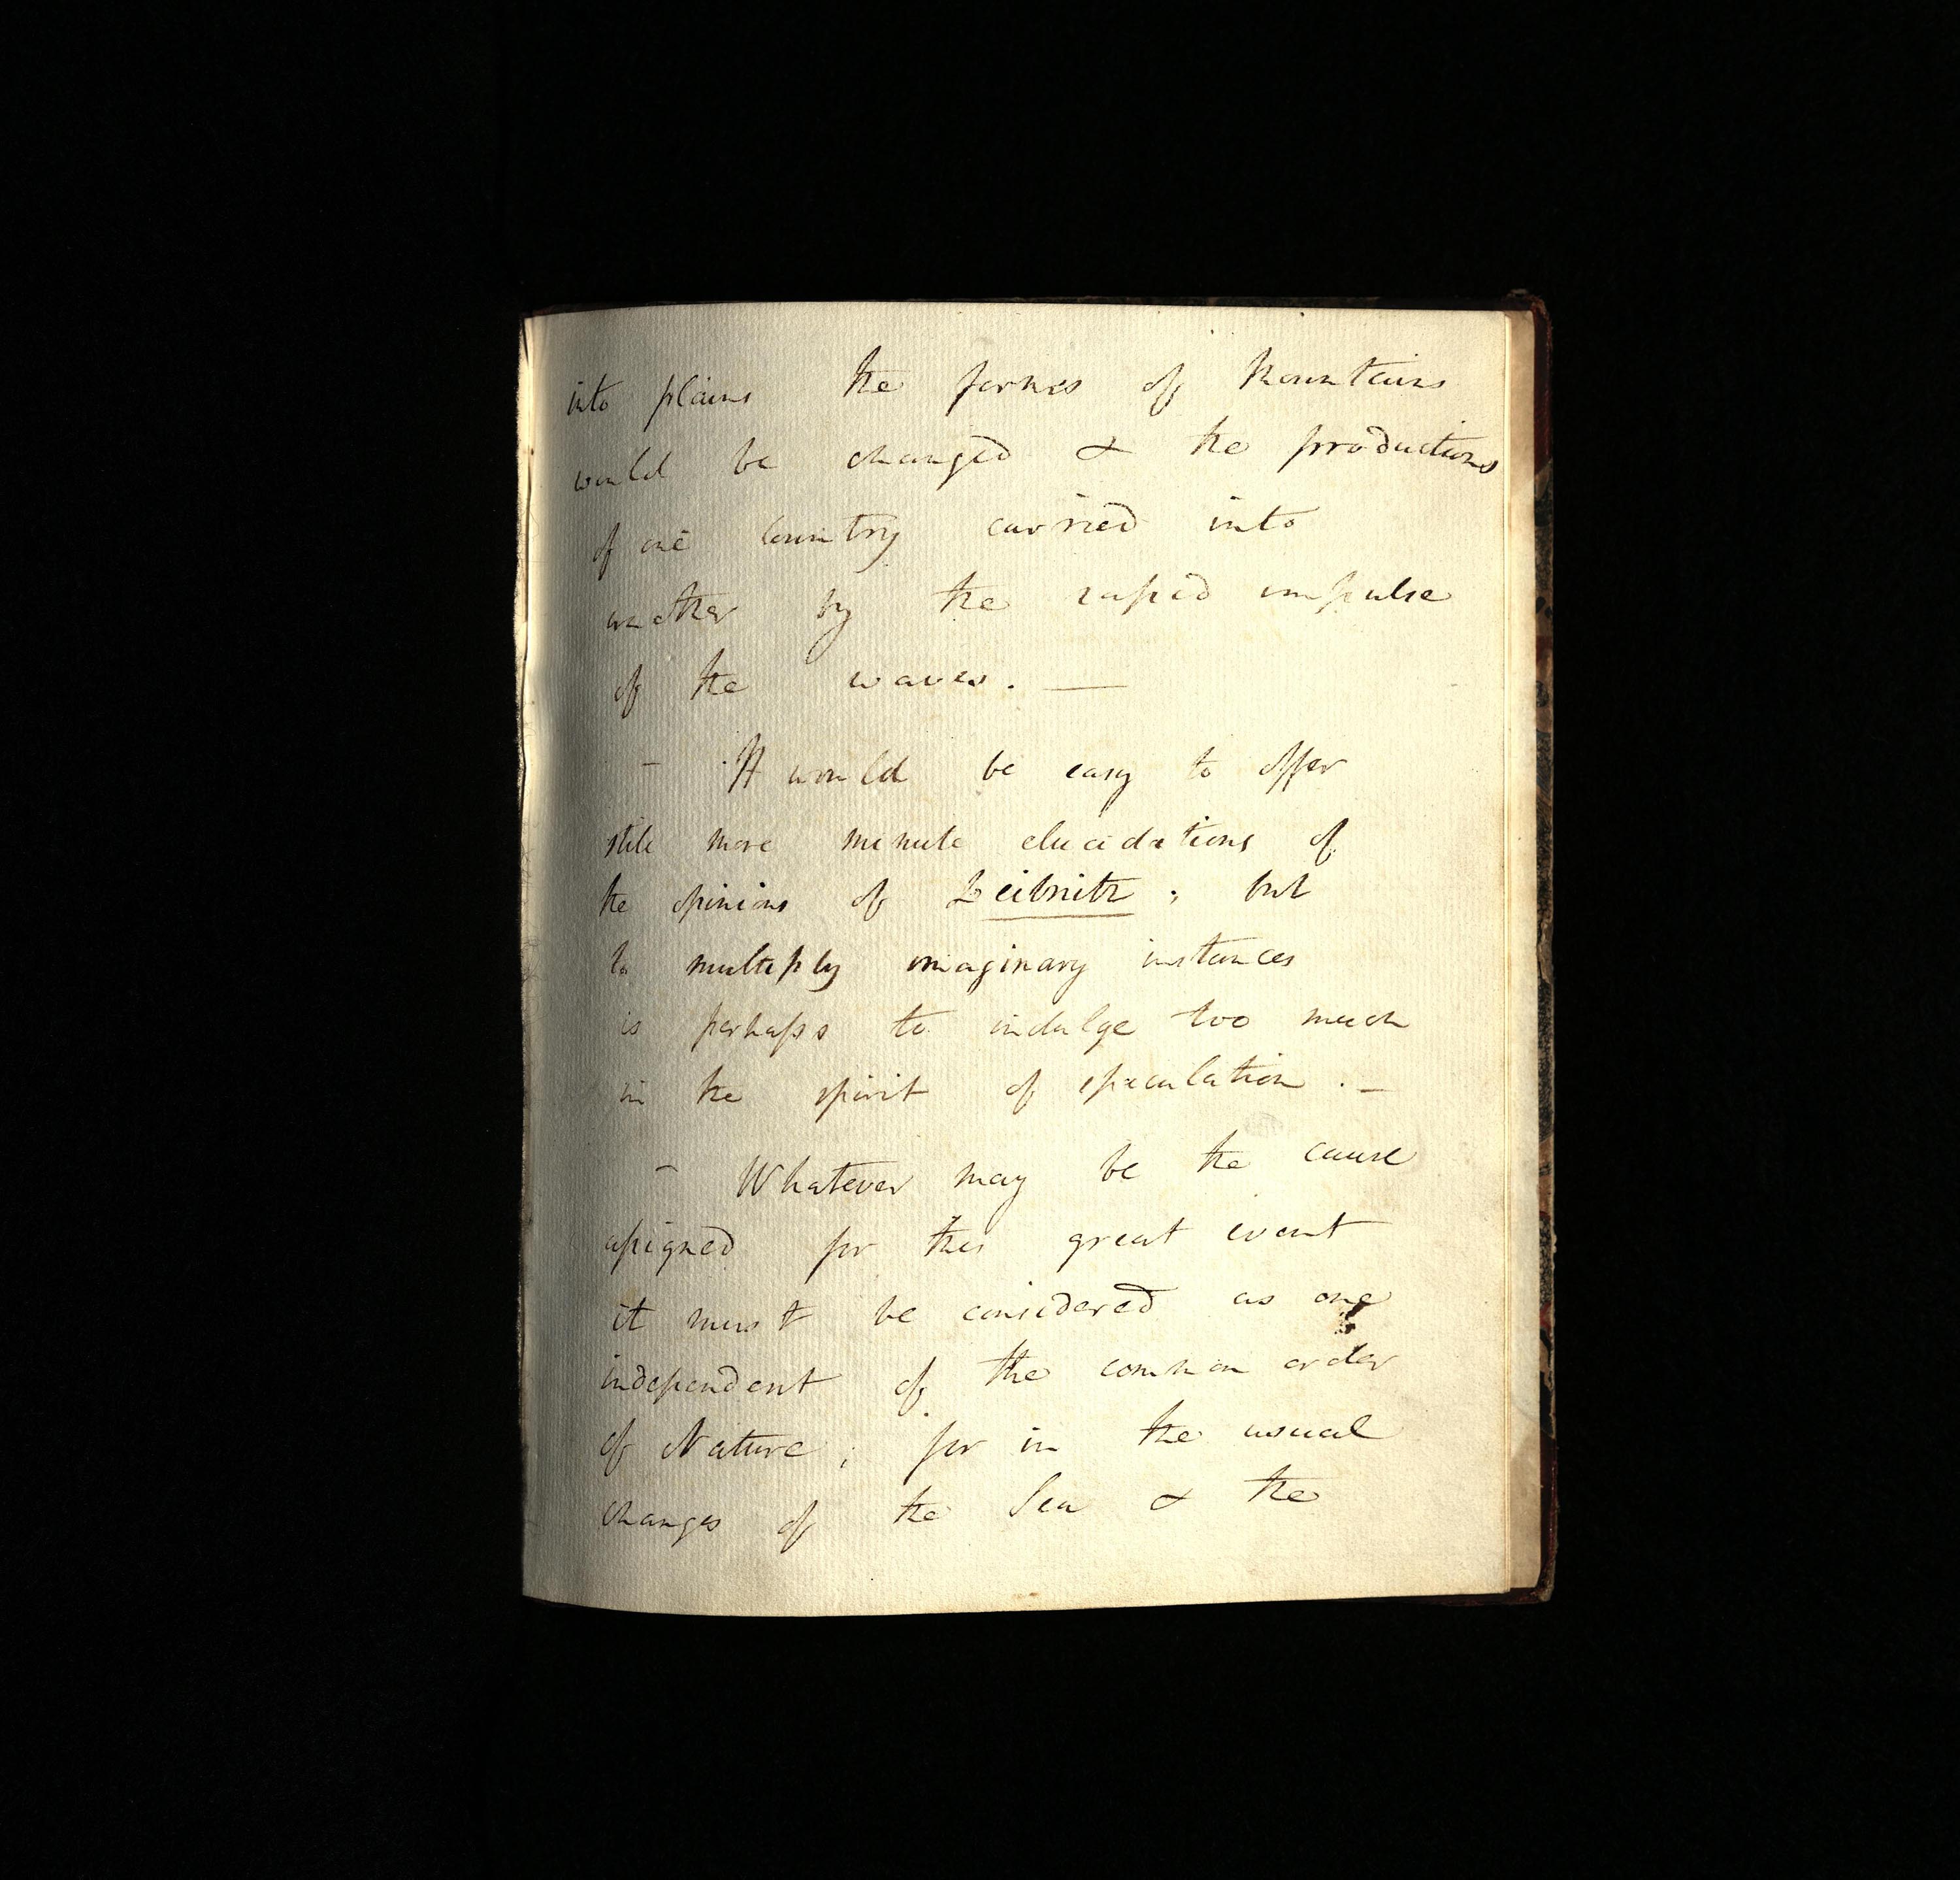 into plains the forms of Mountains
would be changed & the productions
of one Country carried into
another by the rapid impulse
of the waves. —
— It would be easy to offer
still more minute elucidations of
the opinions of Leibnitz; but
to multiply imaginary instances
is perhaps to indulge too much
in the spirit of speculation. —
— Whatever may be the cause
assigned for this great event
it must be considered as one
independent of the common order
of Nature; for in the usual
changes of the Sea & the